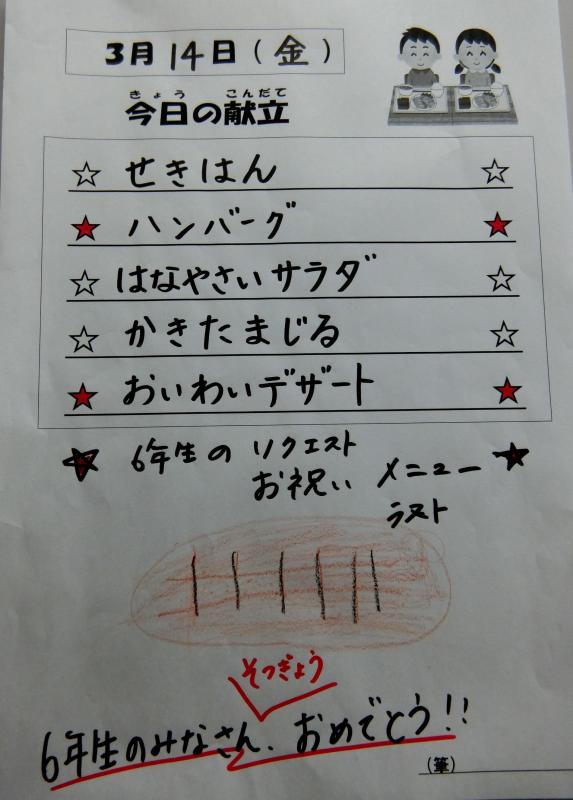 3月14日(金)
きょう こんだて
今日の献立
☆ せきはん ☆
★ ハンバーグ ★
☆ はなやさいサラダ ☆
☆ かきたまじる ☆
★ おいわいデザート ★
★ 6年生の リクエスト ★
お祝い メニュー
ラスト
そつぎょう
6年生のみなさん、おめでとう!!
(筆)